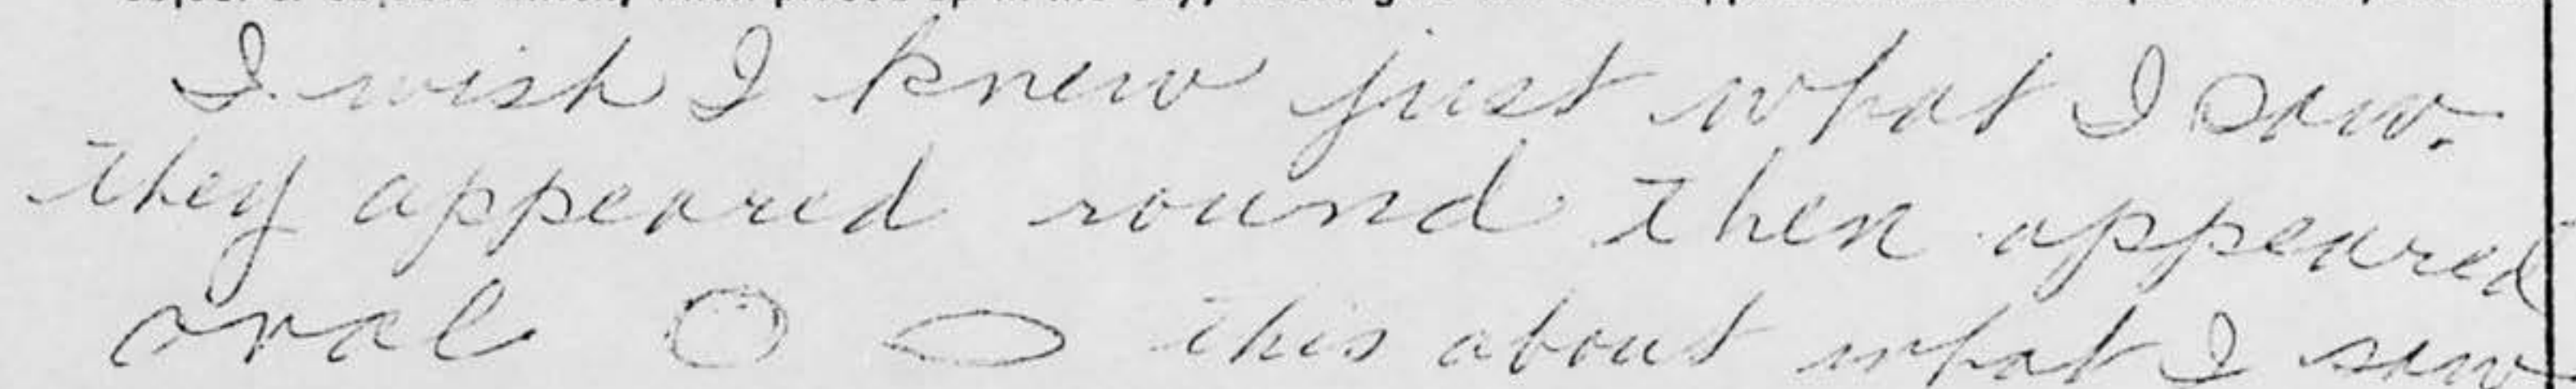 I wish I knew just what I saw.
they appeared round then appeared
oval this about what I saw